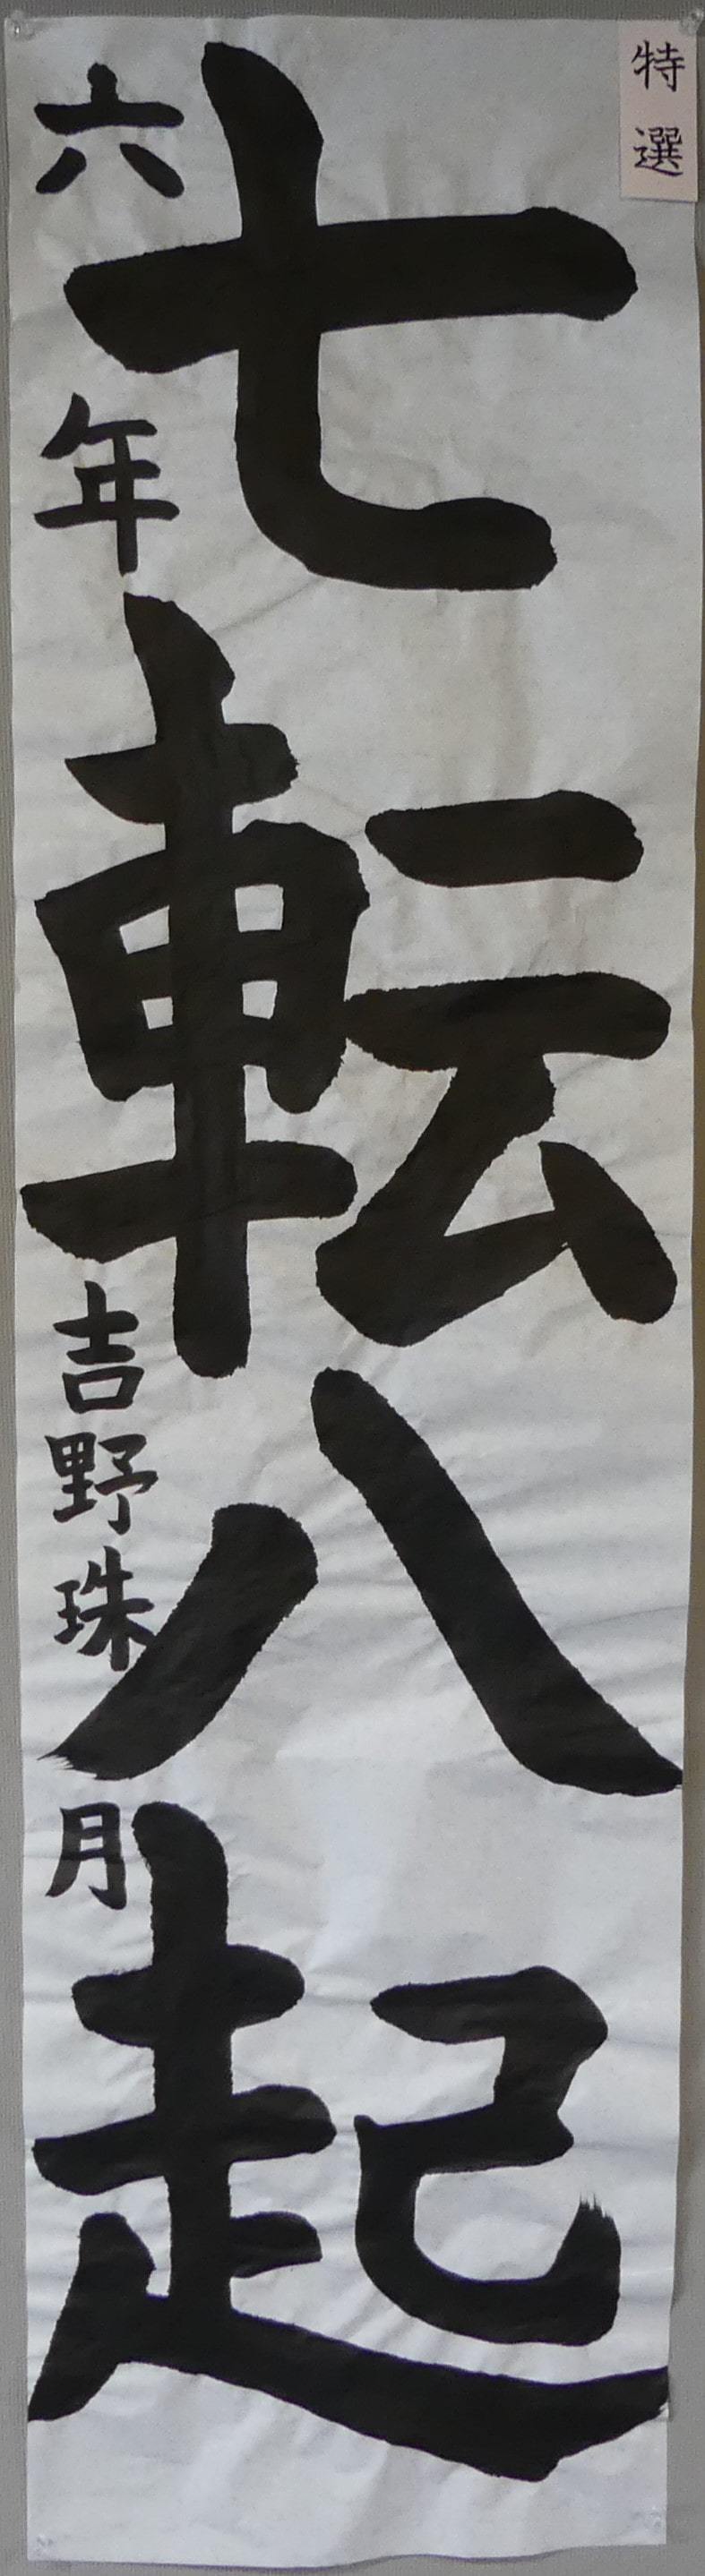 特選
七転八起
六年 吉野珠月